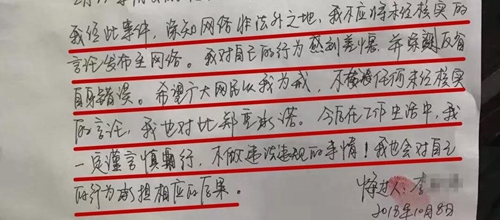 我经此事件，深知网络非法外之地，我不应将未经核实的
言论发布至网络。我对自己的行为感到羞愧，并深刻反省
自身错误。希望广大网民以我为戒，不传播任何未经核实
的言论，我也对此郑重承诺。今后在工作生活中，我
一定谨言慎行，不做违法违规的事情！我也会对自己
的行为承担相应的后果。
悔过人：李
2018年10月8日